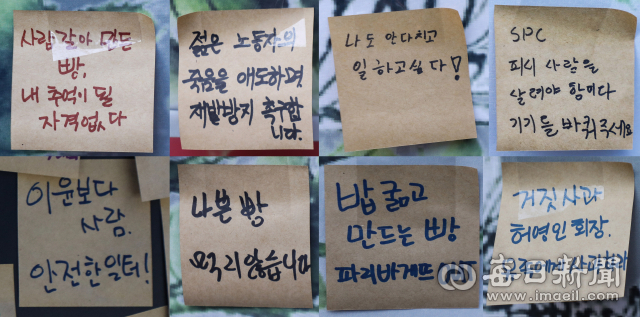 사람 갈아 만든
빵,
내 추억이 될
자격 없다
젊은 노동자의
죽음을 애도하며
재발방지 촉구합
니다.
나도 안 다치고
일 하고 싶다!
SPC
피시 사람을
살려야 합니다
기기를 바꿔주세요
이윤보다
사람.
안전한 일터!
나쁜 빵
먹지 않습니다
밥 굶고
만드는 빵
파리바게뜨 OUT
거짓사과
허영인 회장.
매일신문
www.imaeil.com